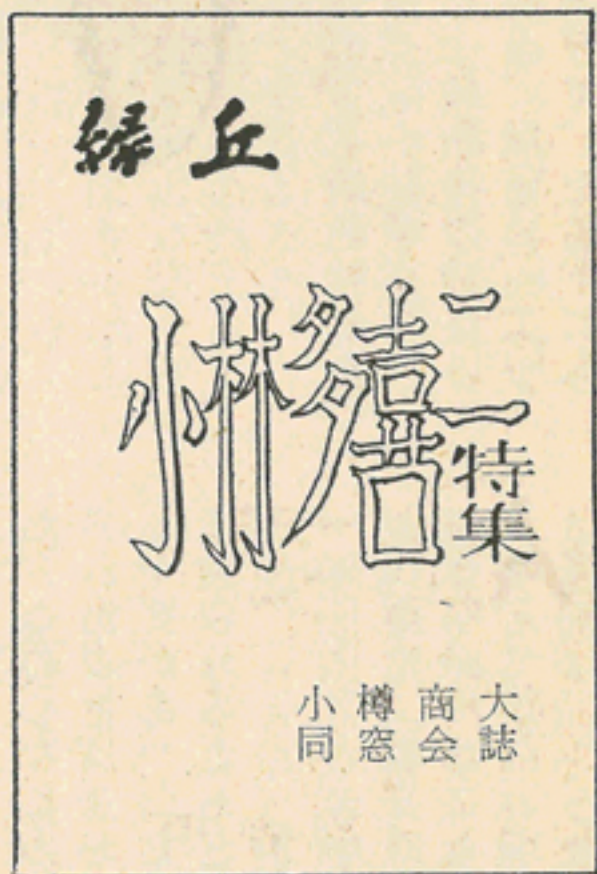 緑丘
小林多喜二
特集
小樽商大
同窓会誌